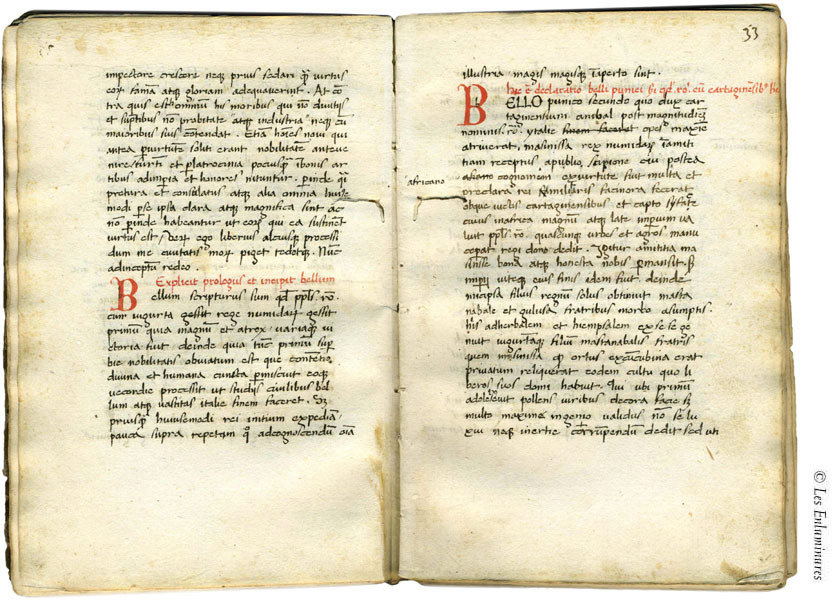 impectore crescert neqꝫ prius sedari qͣ virtus
eoꝝ famā atqꝫ gloriam adequaverint. At cō
tra quis est omniū his moribus qui nō divitijs
et sūptibus nō probitate atqꝫ industria neqꝫ cū
maioribus suis cōtendat. Etiā hoīes novi qui
antea p virtutē soliti erant nobilitatē anteve
nire furtī et p latrocinia pociusqꝫ bonis ar
tibus ad imperia et honores nitūtur. perinde qͣ
pretura et cōsulatus atqꝫ alia omnia huiꝰce
modi per se ipsa clara atqꝫ magnifica sint ac
nō perinde habeantur ut eorꝫ qui ea sustinēt
virtus est. Verū ego liberius alciusqꝫ processi
dum me civitatis morꝫ piget tedetqꝫ. Nūc
ad inceptū redeo.
Explicit prologus et incipit bellum
Bellum scripturus sum qd ppls ro.
cum iugurta gessit rege numidarꝫ gessit
primū quia magnū et atrox variaqꝫ vi
ctoria fuit deinde quia tūc primū super
bie nobilitatis obviatum est que contētio
divina et humana cuncta permiscuit eoqꝫ
vecordie processit ut studijs civilibus bel
lum atqꝫ vastitas italie finem faceret. Sꝫ
priusqꝫ huiusemodi rei initium expediā.
pauca supra repetam quo ad cognoscendū oīa
33
illustria magis magisqꝫ in aperto sint.
hic ē declaratio belli punici
BELLO punico secundo quo dux car
taginensium anibal post magnitudinē
nominis ro. ytalie finem faceret opes maxīe
atriverat, masinissa rex numidarꝫ in amici
tiam receptus a publio scipione cui postea
africano
africano cognomen ex virtute fuit multa et
preclara rei militaris facinora fecerat
ob que victis cartaginensibus et capto syface
cuius in africa magnū atqꝫ late imperium va
luit ppls ro. quascunqꝫ urbes et agros manu
ceperat regi dono dedit. Igitur amicitia ma
sinisse bona atqꝫ honesta nobis permansit. Sꝫ
imperij viteqꝫ eius finis idem fuit. deinde
micipsa filius regnū solus obtinuit masta
nabale et gulussa fratribus morbo asumptis.
his adherbalem et hiempsalem ex se se ge
nuit iugurtāqꝫ filiū mastanabalis fratris
quem masinissa qꝫ ortus ex concubina erat
privatum reliquerat eodem cultu quo li
beros suos domi habuit. Qui ubi primū
adolevit pollens viribus decora facie sꝫ
multo maxime ingenio validus nō se lu
xui neqꝫ inertie corrumpendū dedit sed uti
© Les Enluminures